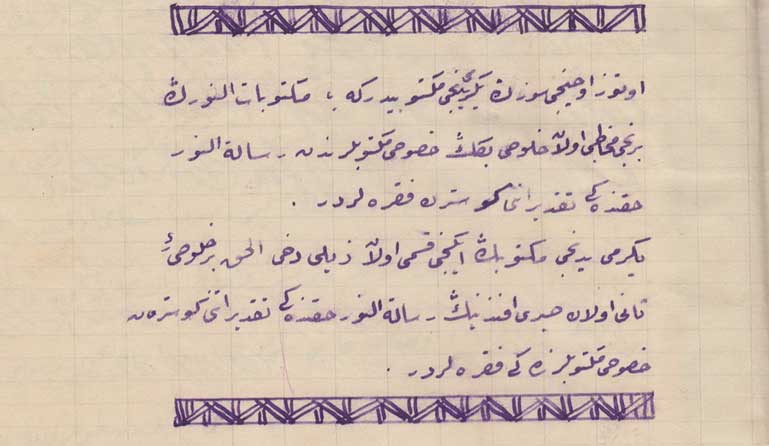 اوتوز اوچنجی سوزڭ یگرمی یدنجی مکتوبیدر که ، مکتوبات النورڭ
برنجی مخاطبی اولان خلوصی بکڭ خصوصی مکتوبلرندن رسالة النور
حقنده کی تقدیراتنی کوسترن فقره لردر .
یگرمی یدنجی مکتوبڭ ایکنجی قسمی اولان ذیلی دخی الحق بر خلوصئ
ثانی اولان صبری افندینڭ رسالة النور حقنده کی تقدیراتنی کوسترن
خصوصی مکتوبلرنده کی فقره لردر .